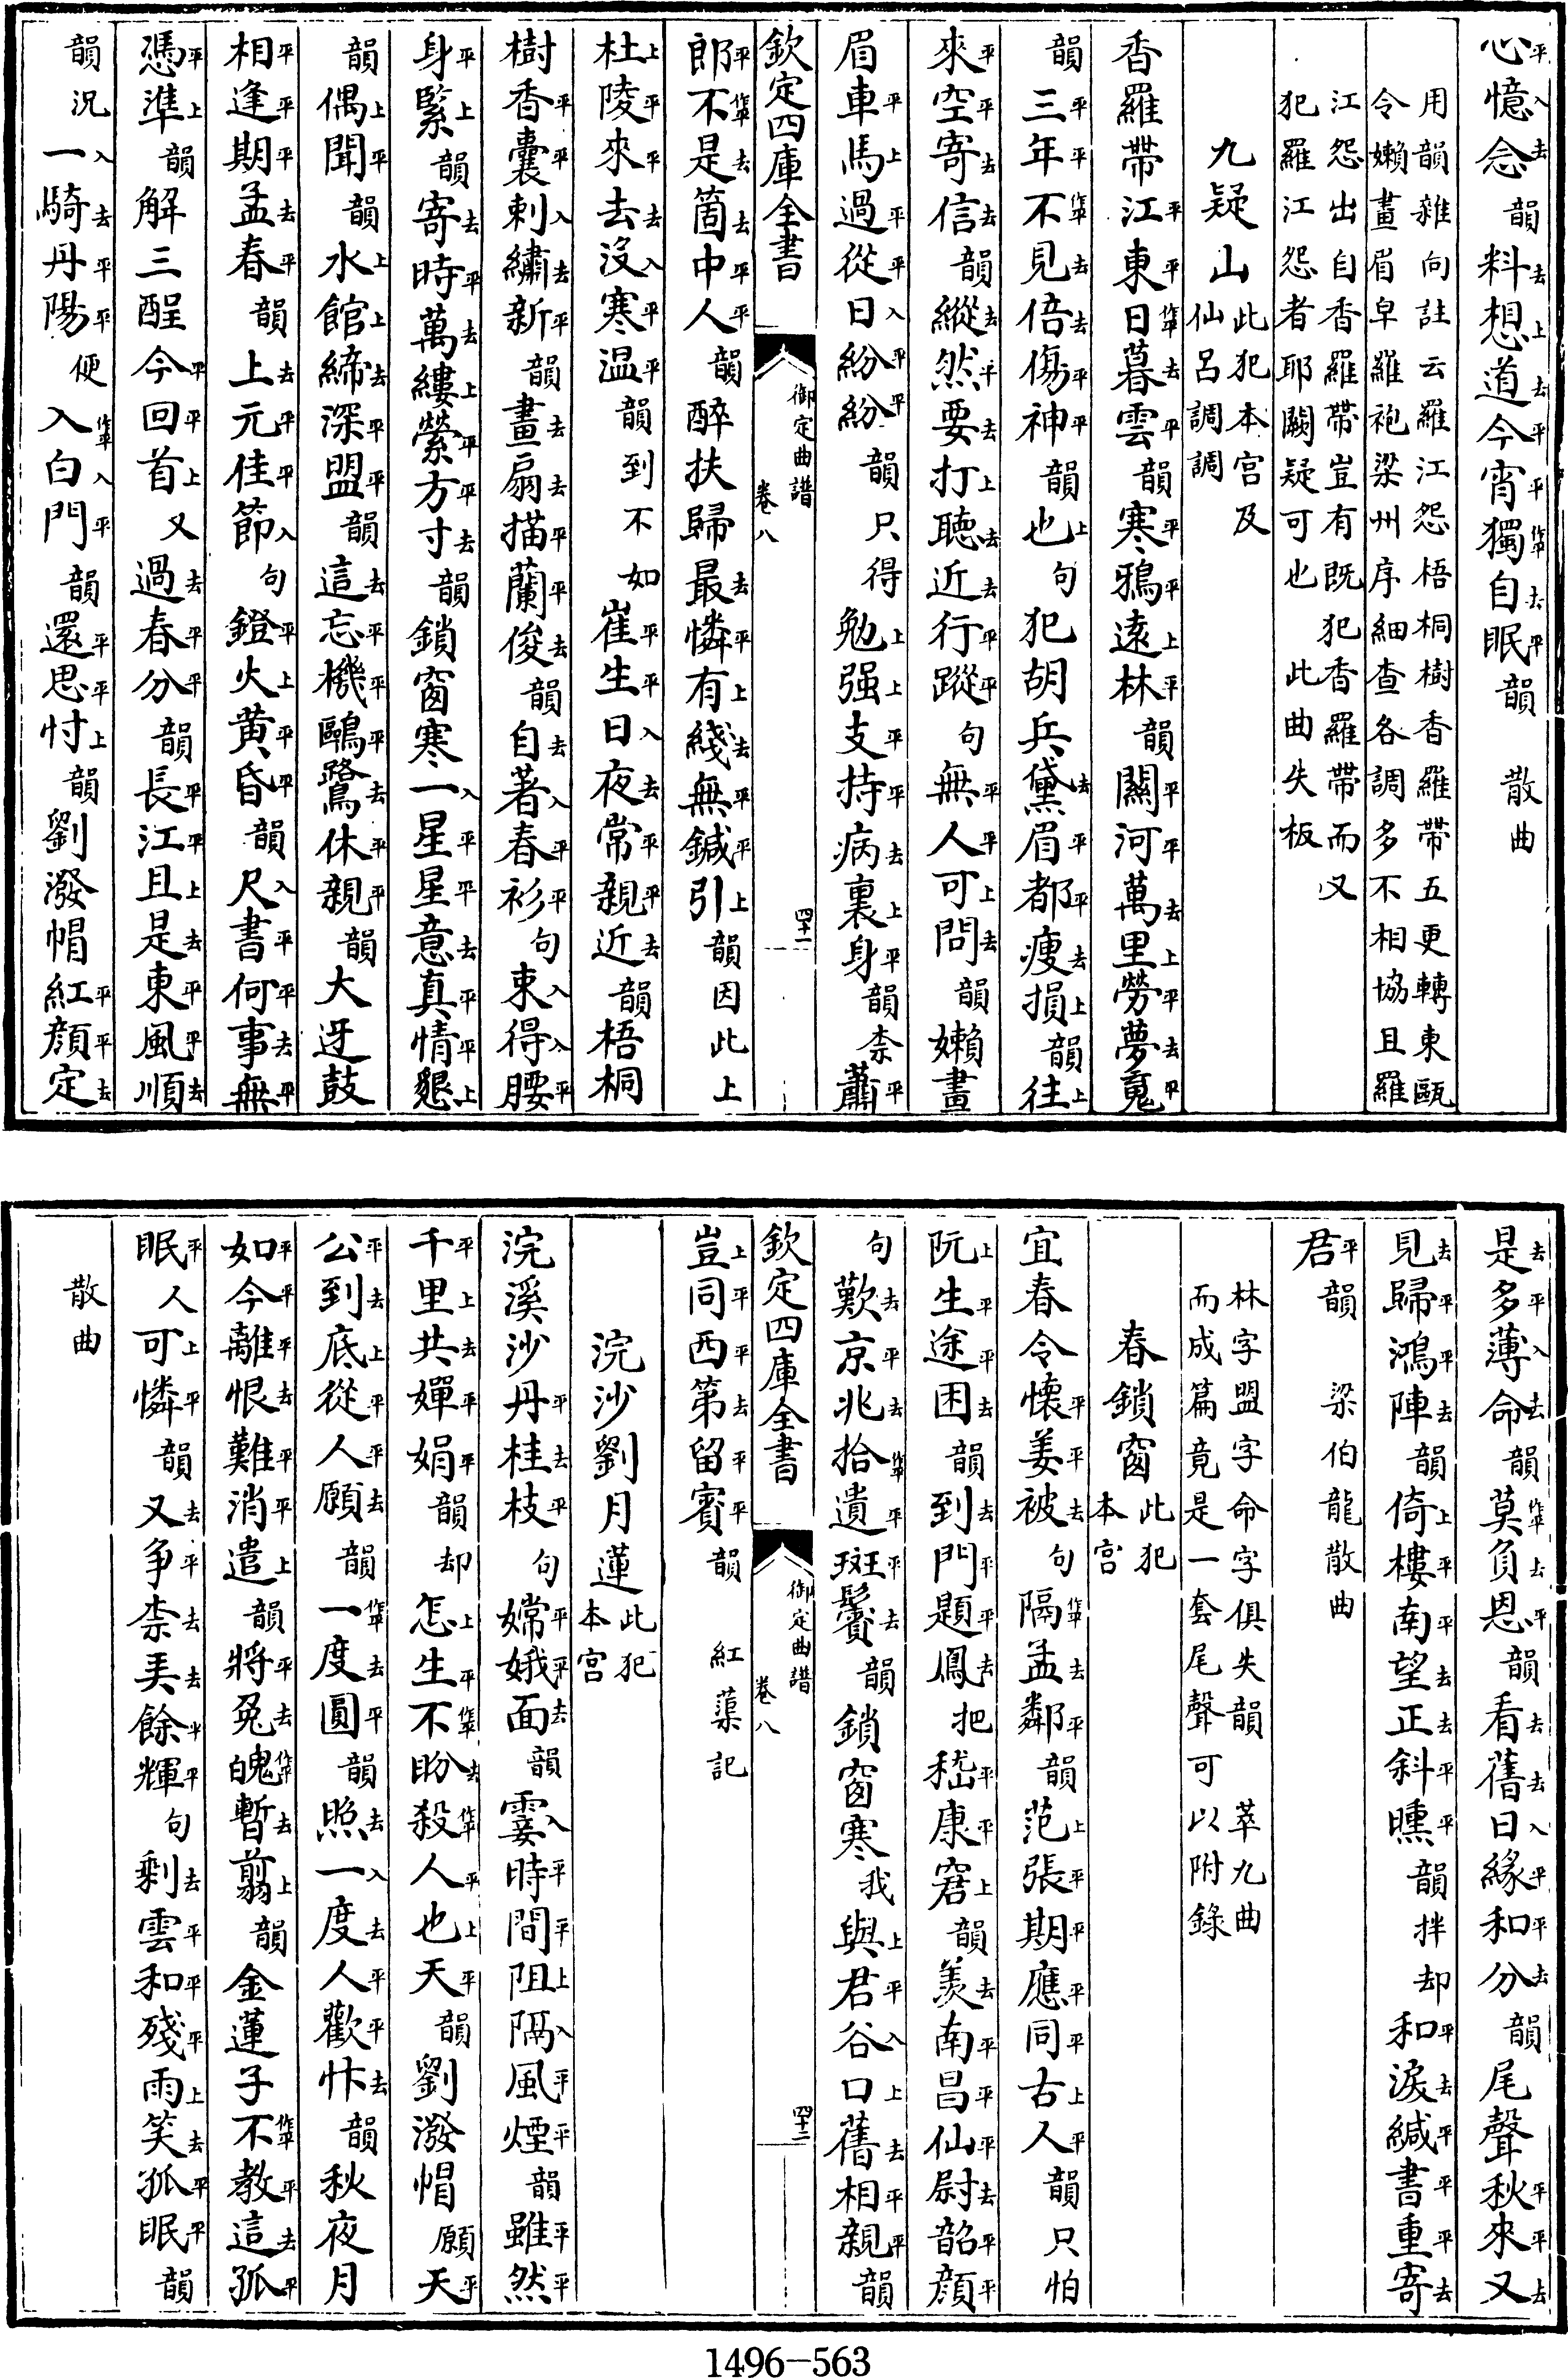 心憶念韻料想道今宵獨自眠韻　散曲
用韻雜向註云羅江怨梧桐樹香羅帶五更轉東甌
令嬾畫眉皁羅袍梁州序細查各調多不相協且羅
江怨出自香羅帶豈有既犯香羅帶而又
犯羅江怨者耶闕疑可也　此曲失板
九疑山此犯本宮及仙呂調調
香羅帶江東日暮雲韻寒鴉遠林韻關河萬里勞夢䰟
韻三年不見倍傷神韻也句犯胡兵黛眉都瘦損韻往
來空寄信韻縱然要打聽近行蹤句無人可問韻嬾畫
眉車馬過從日紛紛韻只得勉强支持病裏身韻柰蕭
欽定四庫全書　御定曲譜　卷八　四十一
郎不是箇中人韻醉扶歸最憐有綫無鍼引韻因此上
杜陵來去沒寒温韻到不如崔生日夜常親近韻梧桐
樹香囊刺繡新韻畫扇描蘭俊韻自著春衫句束得腰
身緊韻寄時萬縷縈方寸韻鎖窗寒一星星意真情懇
韻偶聞韻水館締深盟韻這忘機鷗鷺休親韻大迓鼓
相逢期孟春韻上元佳節句鐙火黃昏韻尺書何事無
憑準韻解三酲今回首又過春分韻長江且是東風順
韻況一騎丹陽便入白門韻還思忖韻劉潑帽紅顏定
是多薄命韻莫負恩韻看舊日緣和分韻尾聲秋來又
見歸鴻陣韻倚樓南望正斜曛韻拌却和淚緘書重寄
君韻　梁伯龍散曲
林字盟字命字俱失韻　萃九曲
而成篇竟是一套尾聲可以附錄
春鎖窗此犯本宮
宜春令懷姜被句隔孟鄰韻范張期應同古人韻只怕
阮生途困韻到門題鳳把嵇康窘韻羨南昌仙尉韶顏
句歎京兆拾遺斑鬢韻鎖窗寒我與君谷口舊相親韻
欽定四庫全書　御定曲譜　卷八　四十二
豈同西第留賓韻　紅蕖記
浣沙劉月蓮此犯本宮
浣溪沙丹桂枝句嫦娥面韻霎時間阻隔風煙韻雖然
千里共嬋娟韻却怎生不盼殺人也天韻劉潑帽願天
公到底從人願韻一度圓韻照一度人歡忭韻秋夜月
如今離恨難消遣韻將兔魄暫翦韻金蓮子不教這孤
眠人可憐韻又爭柰美餘輝句剩雲和殘雨笑孤眠韻
散曲
1496-563